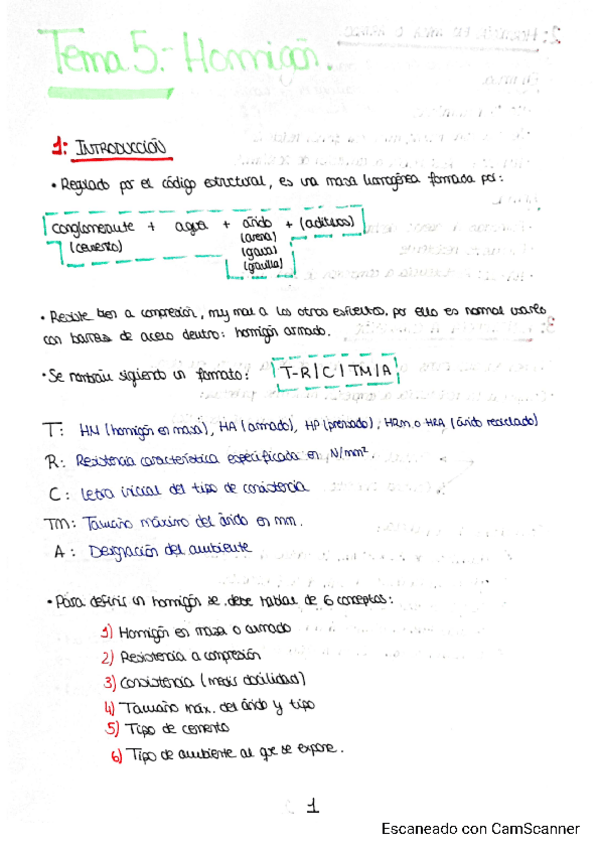 Tema 5.- Hormigón.
1: INTRODUCCIÓN
• Regulado por el código estructural, es una masa homogénea formada por:
conglomerante + agua + árido + (aditivos)
(cemento) (arena)
(grava)
(gravilla)
• Resiste bien a compresión, muy mal a los otros esfuerzos, por ello es normal usarlo
con barras de acero dentro: hormigón armado.
• Se nombran siguiendo un formato: T-R|C|TM|A
T: HM (hormigón en masa), HA (armado), HP (pretensado), HRM o HRA (árido reciclado)
R: Resistencia característica especificada en N/mm².
C: Letra inicial del tipo de consistencia
TM: Tamaño máximo del árido en mm.
A: Designación del ambiente
• Para definir un hormigón se debe hablar de 6 conceptos:
1) Hormigón en masa o armado
2) Resistencia a compresión
3) Consistencia (medir docilidad)
4) Tamaño máx. del árido y tipo
5) Tipo de cemento
6) Tipo de ambiente al que se expone.
1
Escaneado con CamScanner